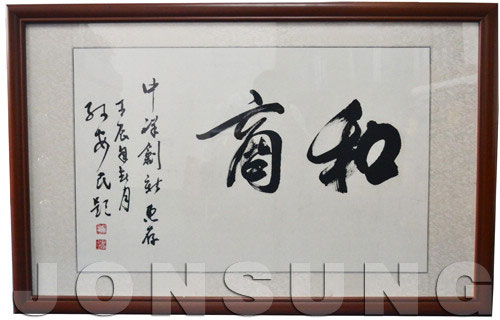 和商
中祥創新惠存
壬辰年秋月
孫安民題
JONSUNG